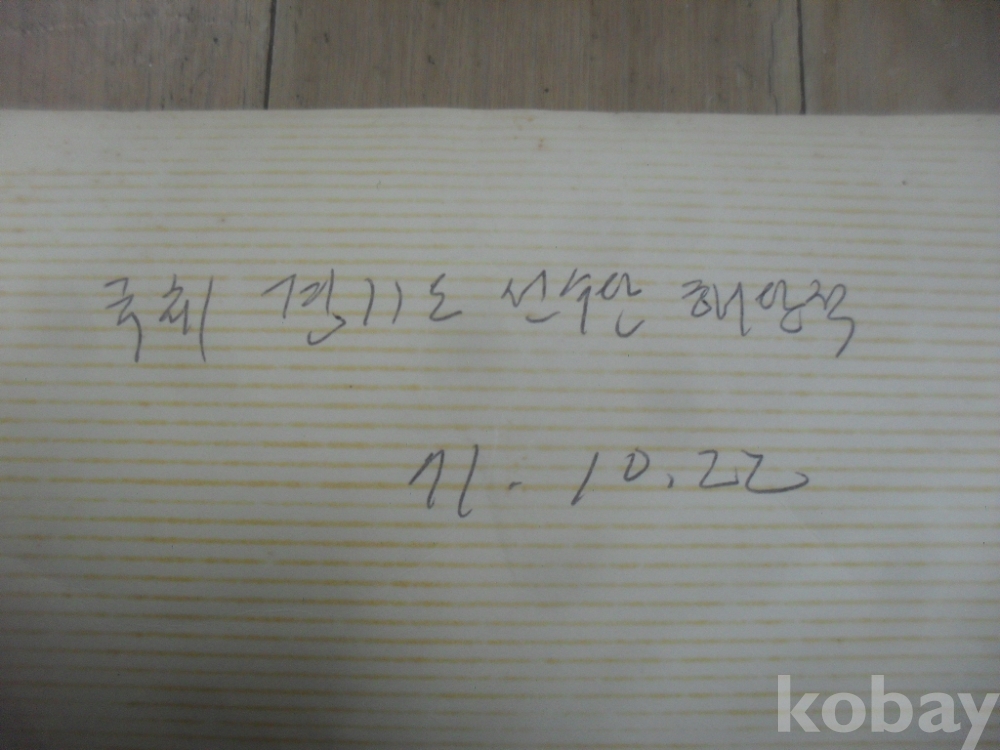 국회 경기도 선수단 해단식
71. 10.22
kobay